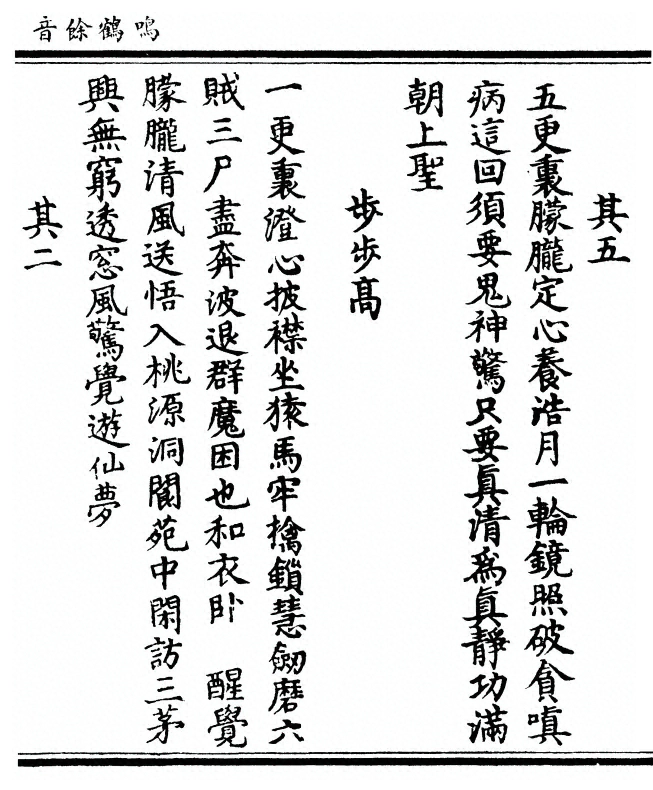 鳴鶴餘音
其五
五更裏朦朧定心養浩月一輪鏡照破貪嗔
病這回須要鬼神驚只要眞清爲眞靜功滿
朝上聖
步步高
一更裏澄心披襟坐猿馬牢擒鎖慧劒磨六
賊三尸盡奔波退群魔困也和衣卧　醒覺
朦朧清風送悟入桃源洞閬苑中閑訪三茅
興無窮透窓風驚覺遊仙夢
其二